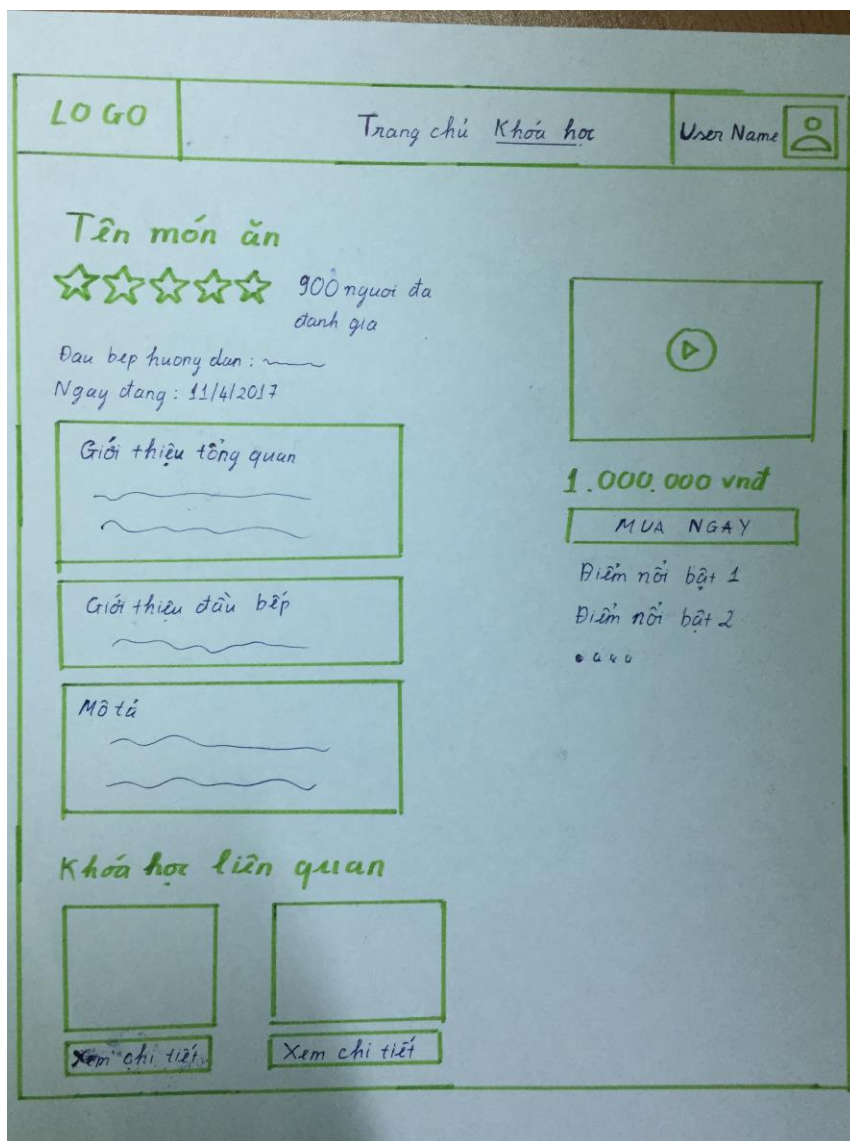 LOGO
Trang chủ Khóa học
User Name
Tên món ăn
900 nguoi đa
đanh gia
Đau bep huong dan :
Ngay đang : 11/4/2017
Giới thiệu tổng quan
Giới thiệu đầu bếp
Mô tả
1.000.000 vnđ
MUA NGAY
Điểm nổi bật 1
Điểm nổi bật 2
Khóa học liên quan
Xem chi tiết
Xem chi tiết